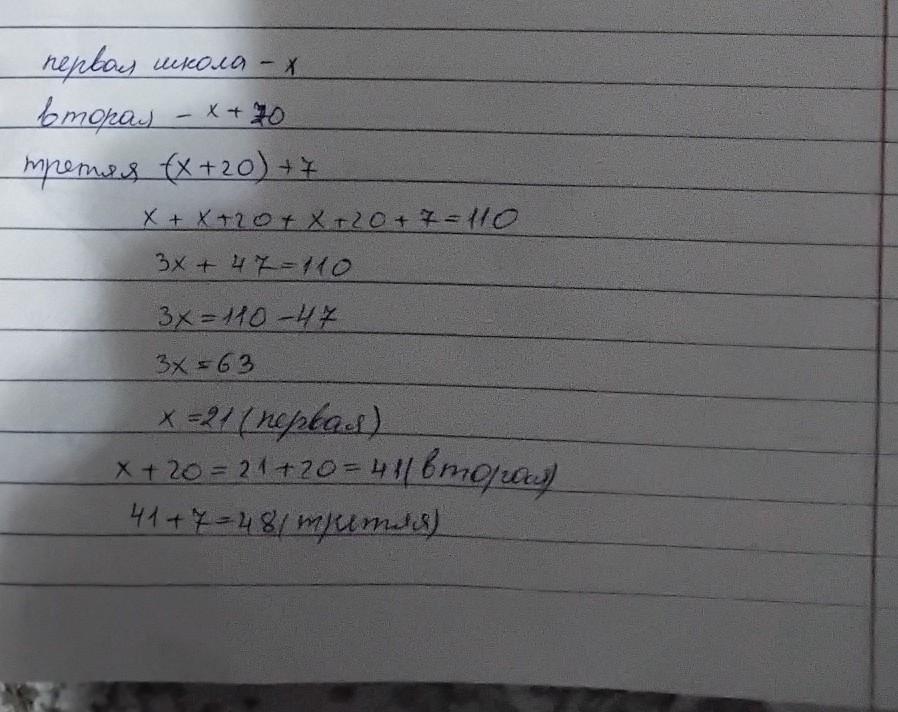 первая школа - x
вторая - x + 20
третяя (x+20) + 7
x + x+20 + x+20 + 7 = 110
3x + 47 = 110
3x = 110 - 47
3x = 63
x = 21 (первая)
x + 20 = 21 + 20 = 41 (вторая)
41 + 7 = 48 (третяя)